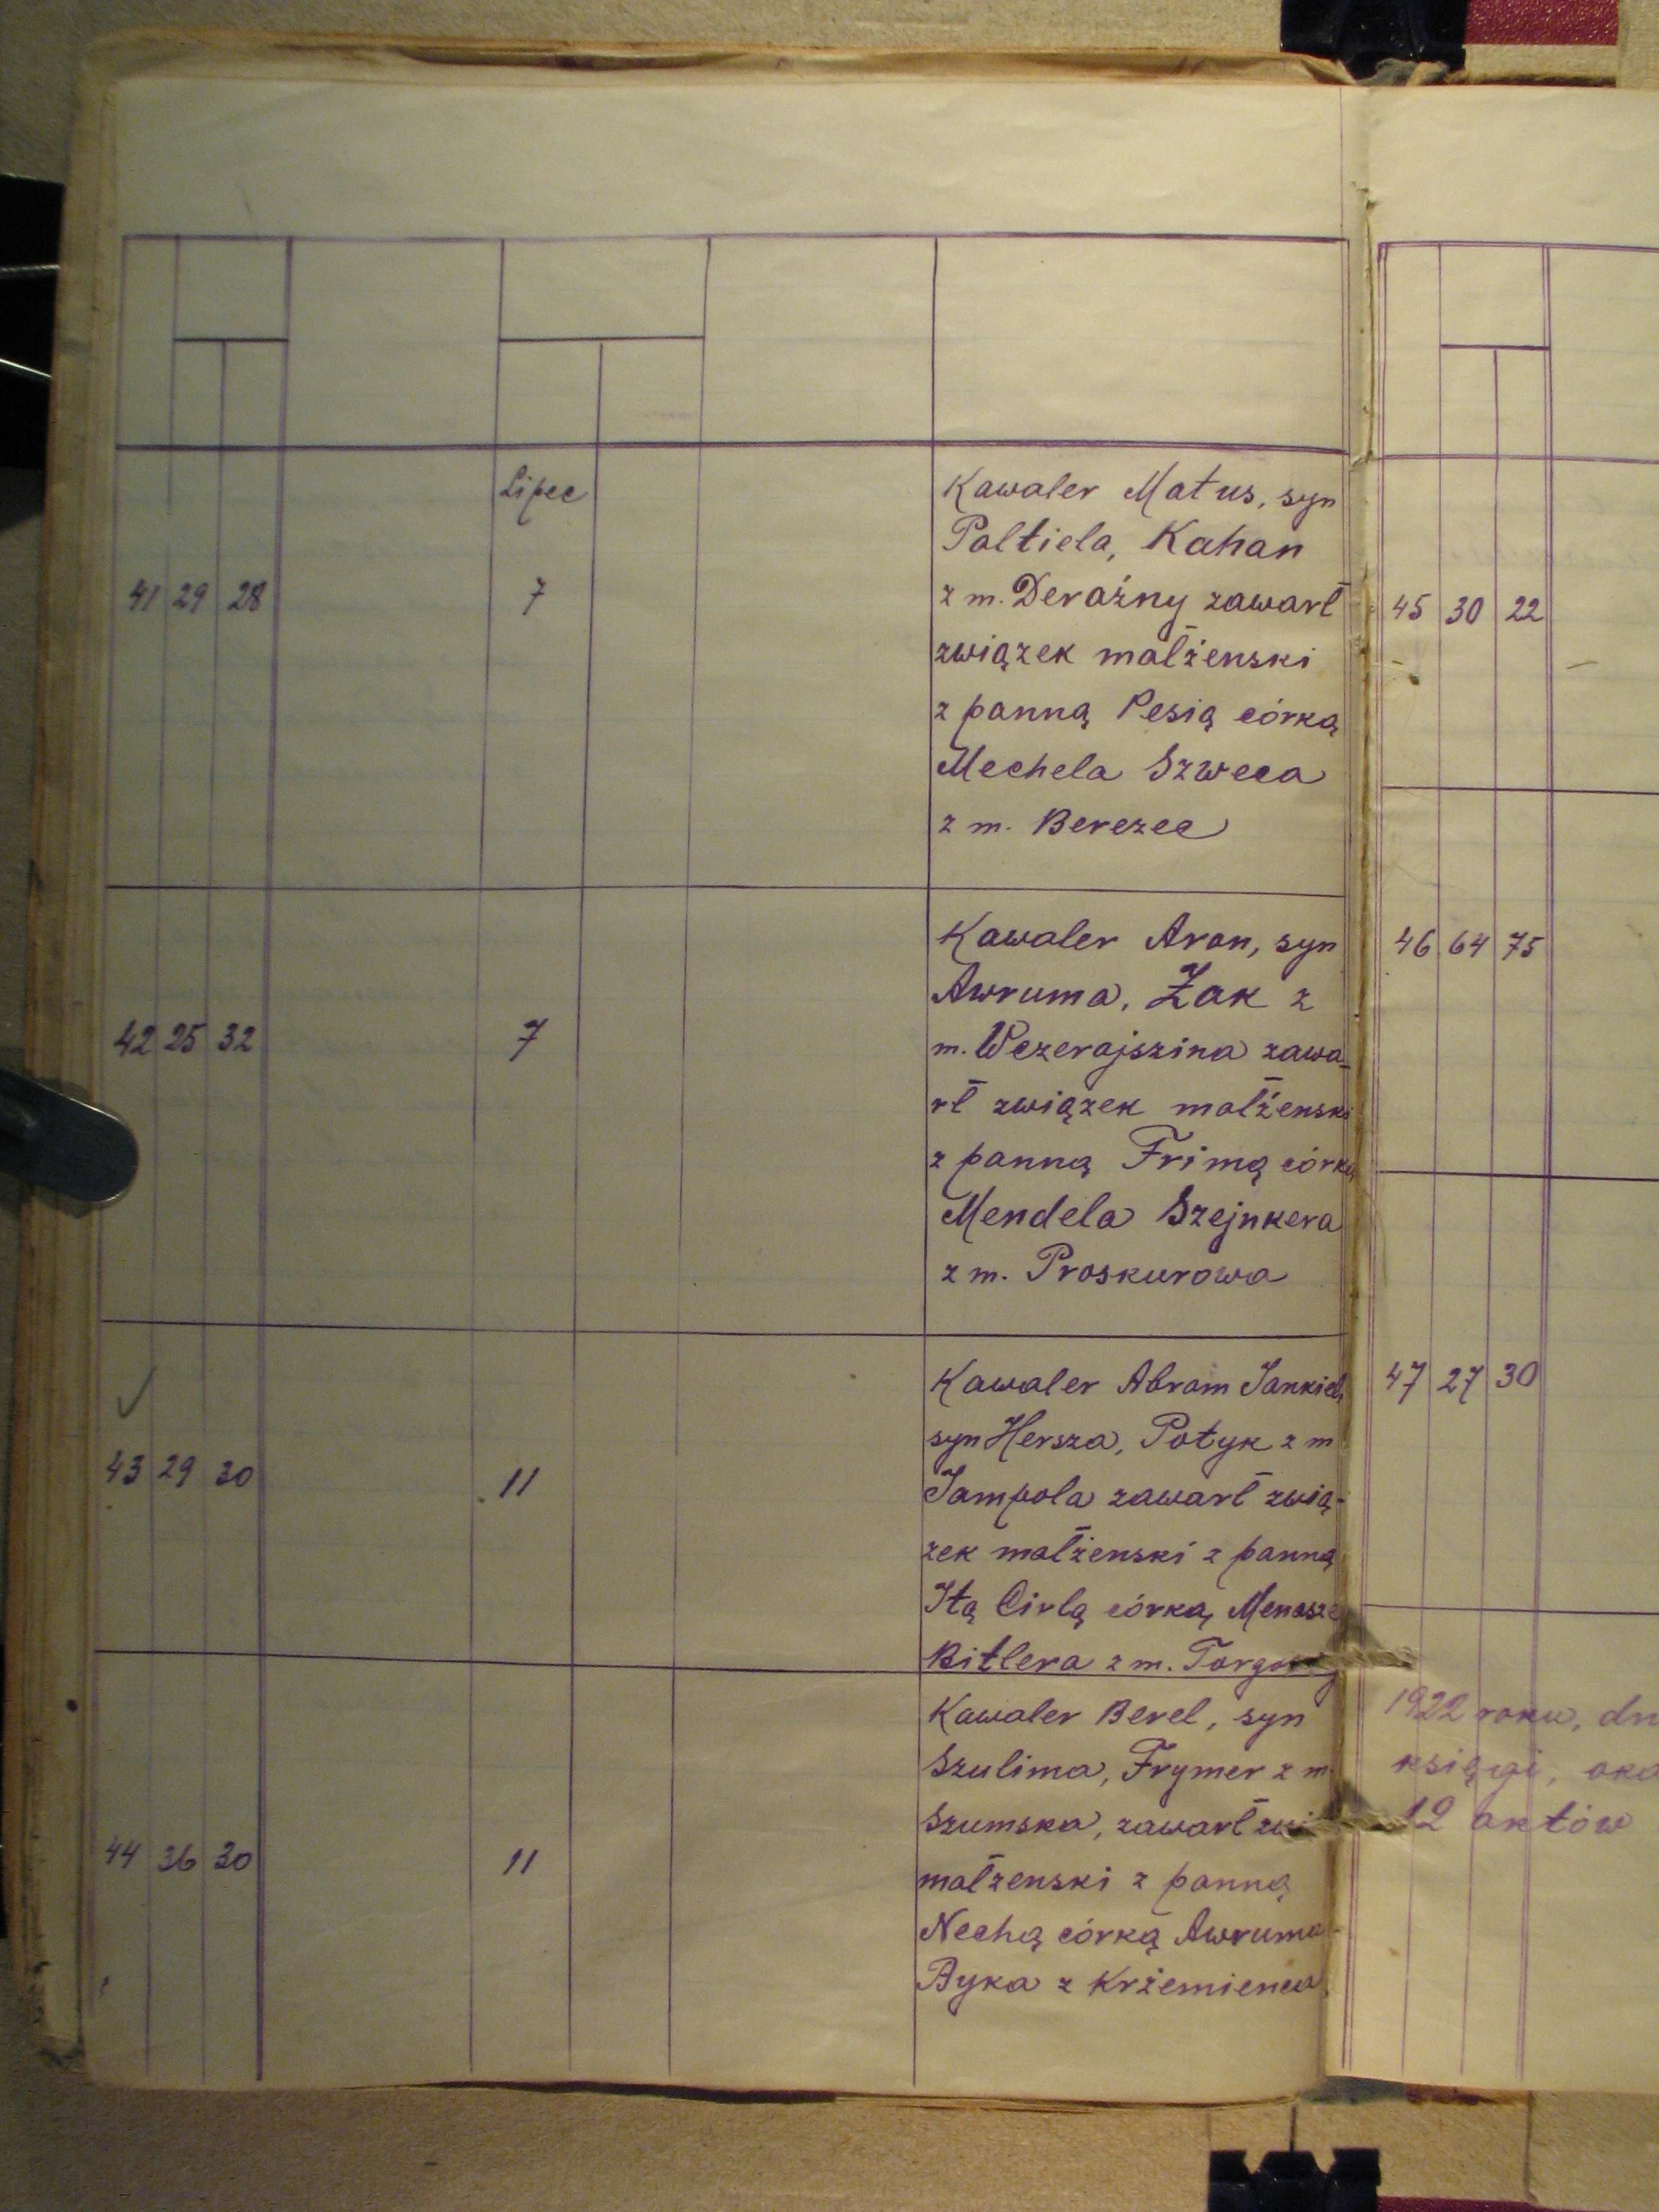 Lipec
41 29 28
7
Kawaler Matus, syn
Paltiela, Kahan
z m. Deraźny zawarł
związek małżenski
z panną Pesią córką
Mechela Szweca
z m. Berezec
42 25 32
7
Kawaler Aron, syn
Awruma, Żak z
m. Wczerajszina zawa-
rł związek małżenski
z panną Frimą córką
Mendela Szejnkera
z m. Proskurowa
43 29 30
11
Kawaler Abram Jankiel,
syn Hersza, Potyk z m
Jampola zawarł zwią-
zek małżenski z panną
Itą Cirlą córką Menasze
Bitlera z m.
44 36 30
11
Kawaler Berel, syn
Szulima, Frymer z m.
Szumska, zawarł
małzenski z panną
Nechą córką Awruma
Byka z Krżemienca
45 30 22
46 64 75
47 27 30
1922 roku, dn
księgi, oka
12 aktów